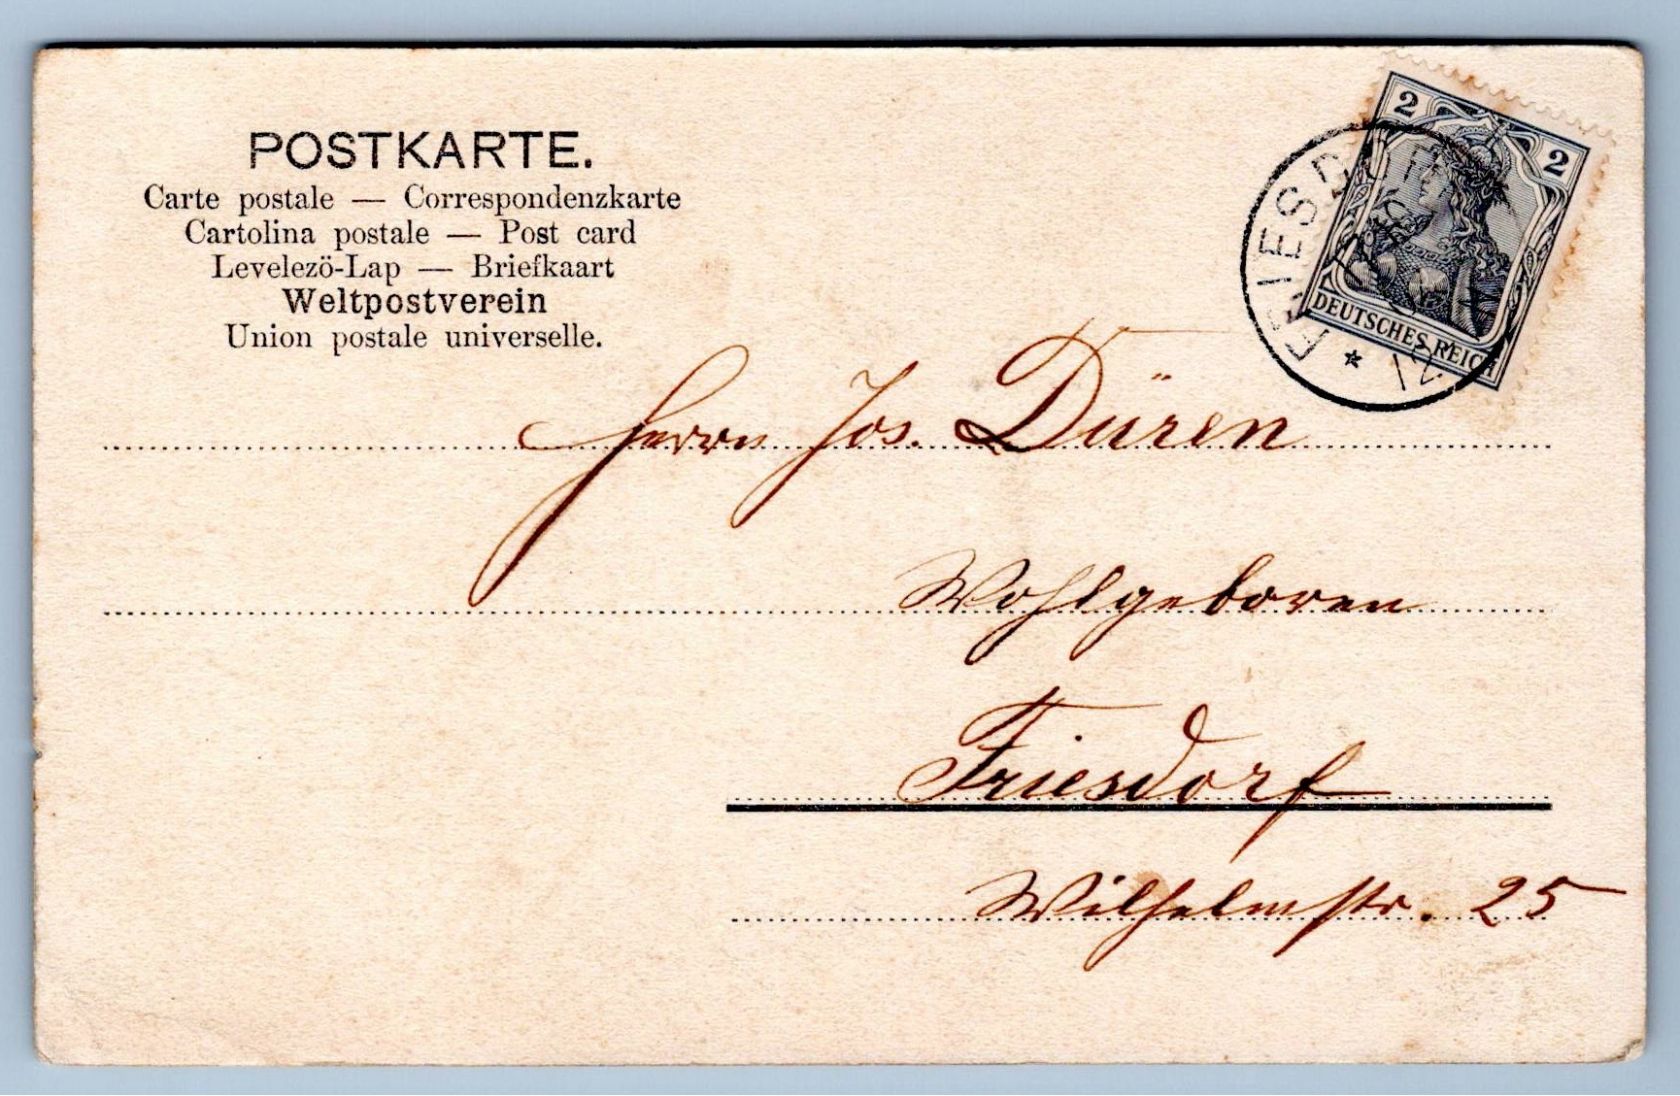 POSTKARTE.
Carte postale — Correspondenzkarte
Cartolina postale — Post card
Levelezö-Lap — Briefkaart
Weltpostverein
Union postale universelle.
2 2
DEUTSCHES REICH
FRIESDORF
* 12
Herrn Jos. Düren
Wohlgeboren
Friesdorf
Wilhelmstr. 25